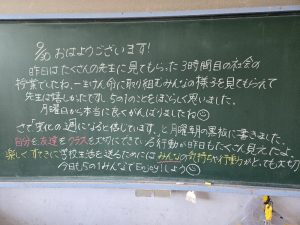 9/30 おはようございます!
昨日はたくさんの先生に見てもらった3時間目の社会の
授業でしたね。一生けん命に取り組むみんなの様子を見てもらえて
先生は嬉しかったです。5の1のことをほこらしく思いました。
月曜日から本当に良くがんばりましたね☺
さて「変化の週になると信じています。」と月曜朝の黒板に書きました。
自分も友達もクラスも大切にできている行動が昨日もたくさん見えたよ。
楽しくすてきに学校生活を送るためにはみんなの気持ちや行動がとっても大切
今日も5の1みんなでEnjoy!しよう☺